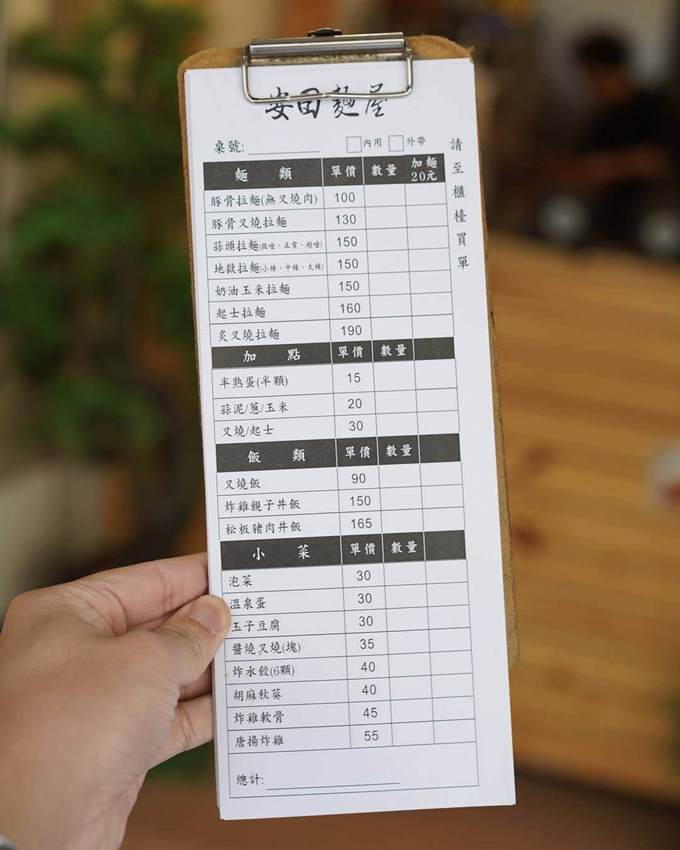 安田麵屋
桌號: 內用 外帶
請至櫃檯買單
麵類 單價 數量 加麵20元
豚骨拉麵(無叉燒肉) 100
豚骨叉燒拉麵 130
蒜頭拉麵(微嗆、正常、超嗆) 150
地獄拉麵(小辣、中辣、大辣) 150
奶油玉米拉麵 150
起士拉麵 160
炙叉燒拉麵 190
加點 單價 數量
半熟蛋(半顆) 15
蒜泥/蔥/玉米 20
叉燒/起士 30
飯類 單價 數量
叉燒飯 90
炸雞親子丼飯 150
松板豬肉丼飯 165
小菜 單價 數量
泡菜 30
溫泉蛋 30
玉子豆腐 30
醬燒叉燒(塊) 35
炸水餃(6顆) 40
胡麻秋葵 40
炸雞軟骨 45
唐揚炸雞 55
總計: